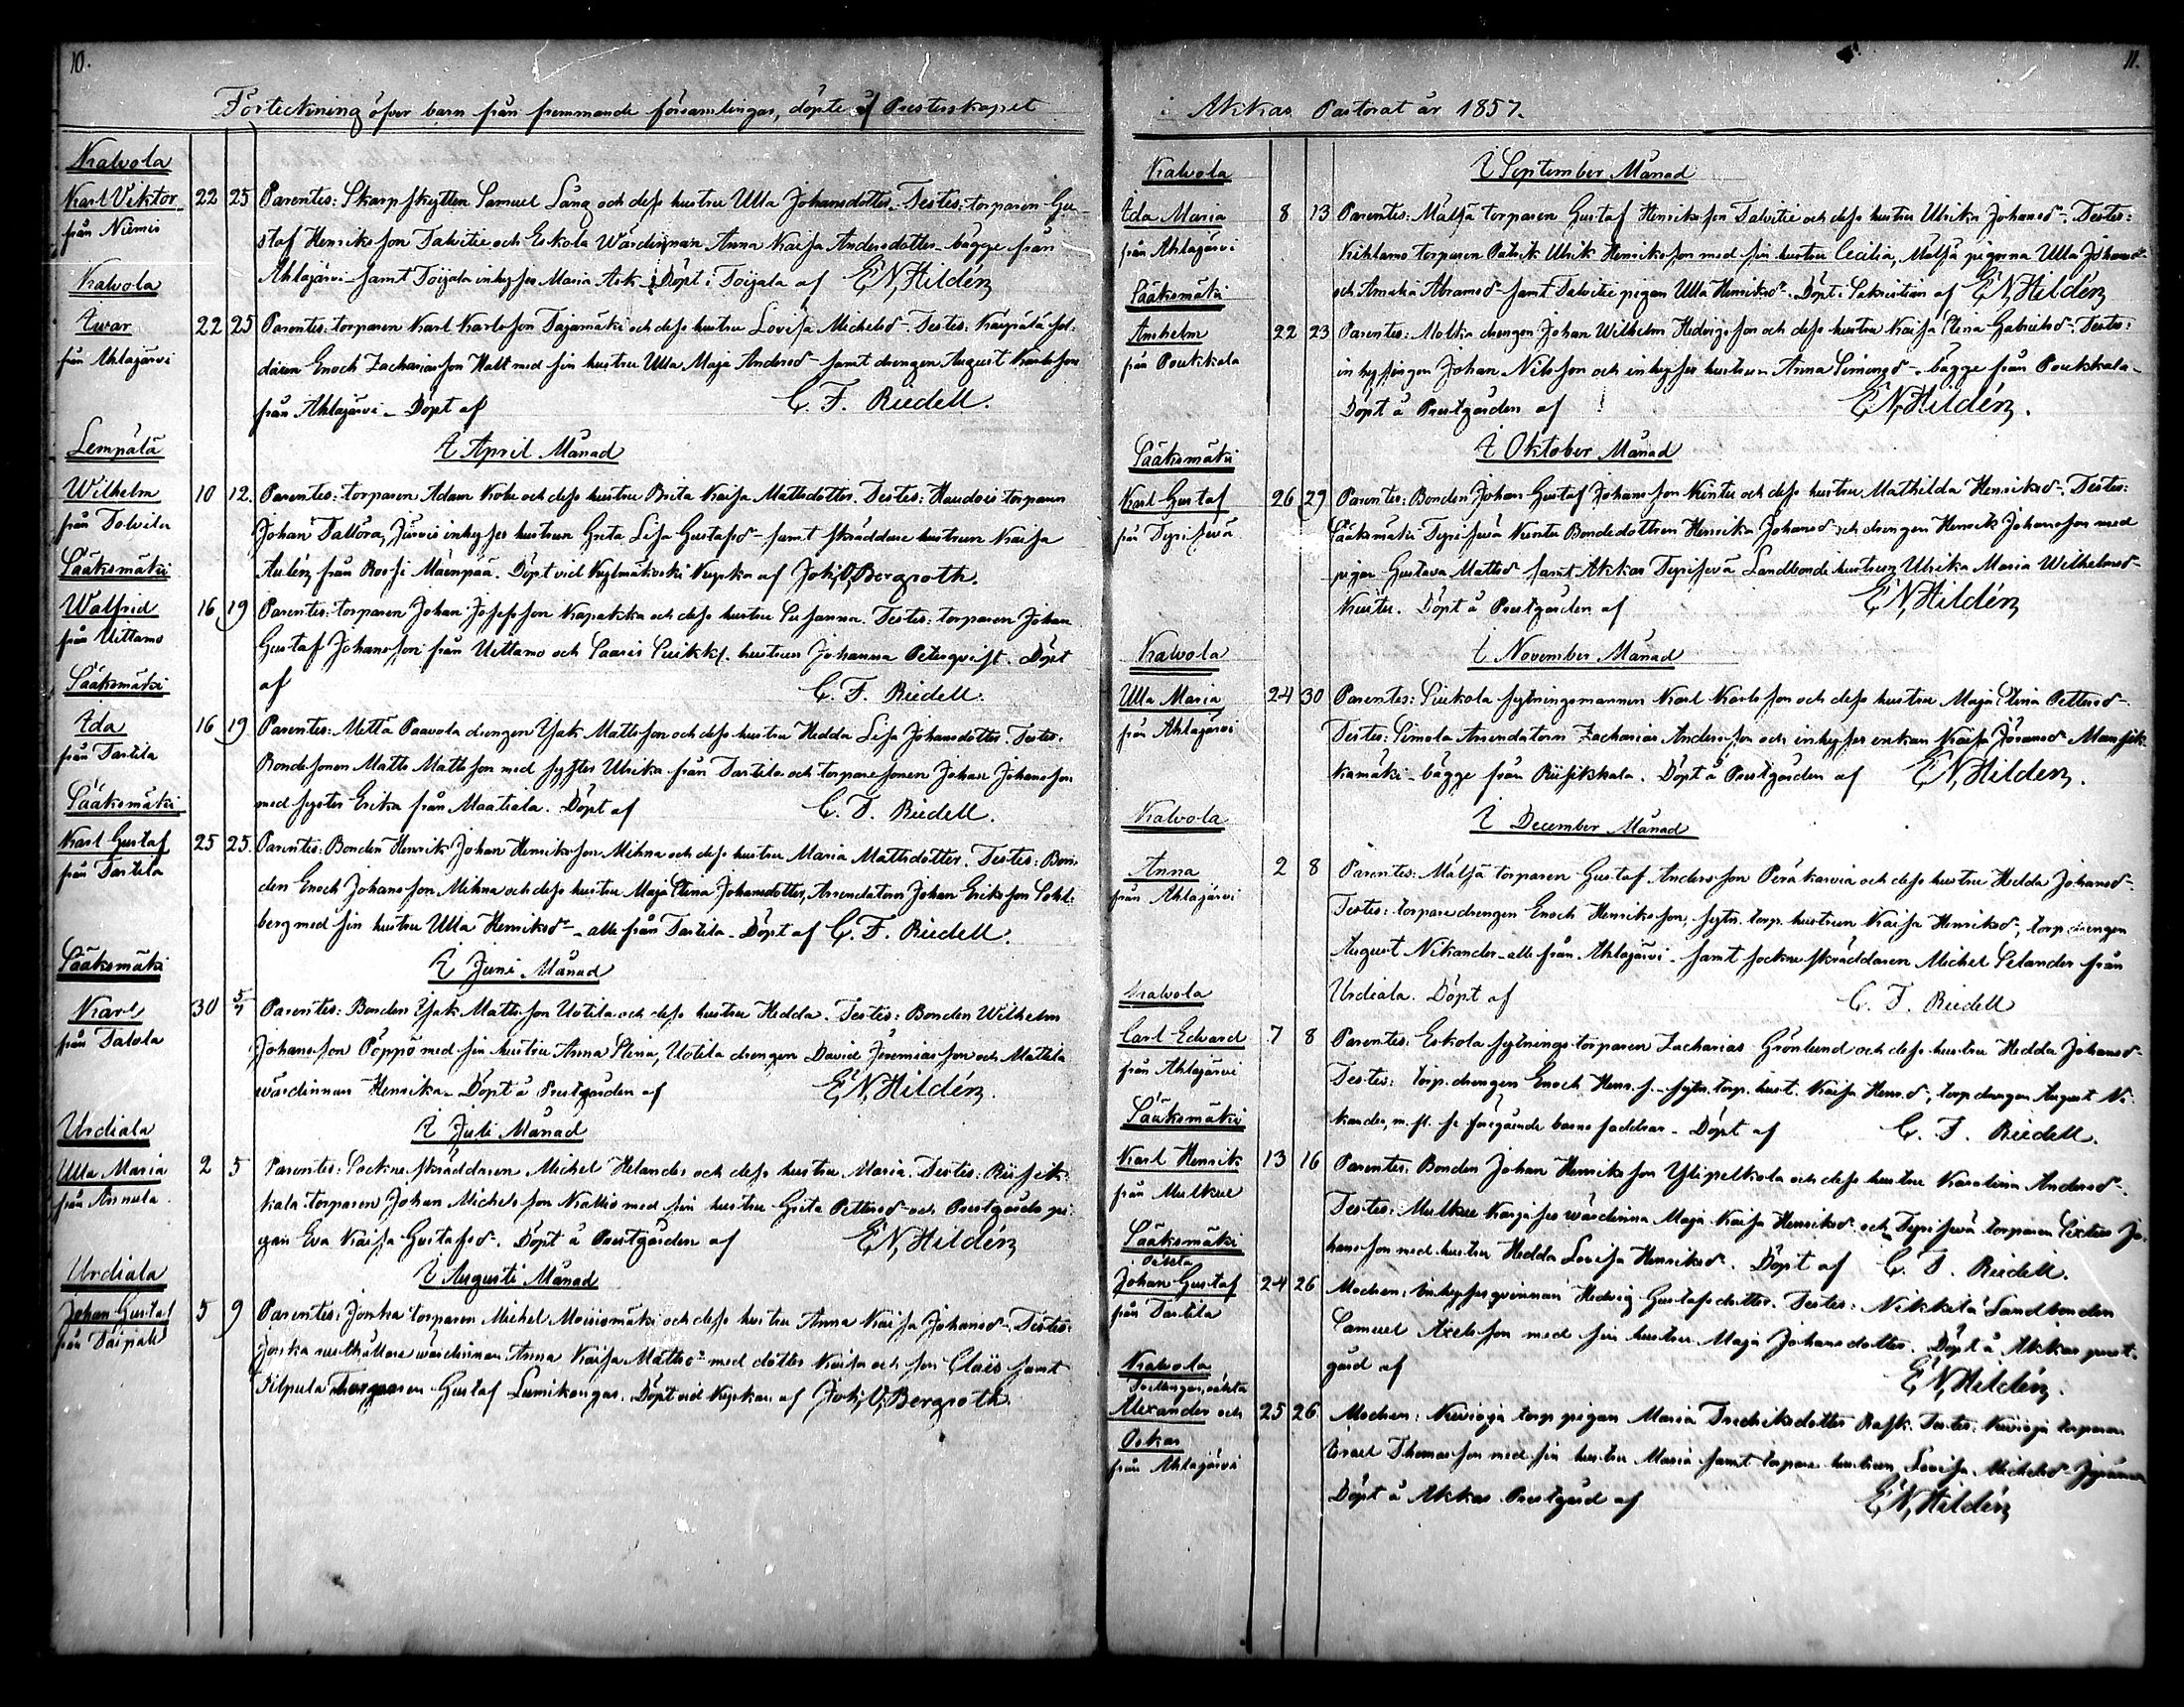 10.
Förteckning öfver barn från fremmande församlingar, döpte af Presterskapet
Kalvola
Karl Viktor 22 25 Parentes: Skarpskytten Samuel Lång och dess hustru Ulla Johansdotter. Testes: torparen Gu-
från Niemis
staf Henriksson Talvitie och Eskola Wärdinnan Anna Kaisa Andersdotter bägge från
Ahlajärvi samt Toijala inhyses Maria Ask. Döpt i Toijala af E. N. Hildén
Kalvola
Iwar 22 25 Parentes: torparen Karl Karlsson Tagamäki och dess hustru Lovisa Michelsdr. Testes: Kurpälä sol-
från Ahlajärvi
daten Enoch Zachariasson Halt med sin hustru Ulla Maja Andersdr samt drengen August Karlsson
från Ahlajärvi. Döpt af C. F. Riedell.
Lempälä
I April Månad
Wilhelm 10 12 Parentes: torparen Adam Koke och dess hustru Brita Kaisa Mattsdotter. Testes: Haudois torparen
från Tolvila
Johan Tallora, Jurvis inhyses hustrun Greta Lisa Gustafsdr samt skräddare hustrun Kaisa
Aulin från Rossi Mäenpää. Döpt vid Kyrkan af Joh. V. Bergroth.
Sääksmäki
Walfrid 16 19 Parentes: torparen Johan Josefsson Kapakka och dess hustru Susanna. Testes: torparen Johan
från Uittamo
Gustaf Johansson från Uittamo och Saaris hustrun Johanna Petersqvist. Döpt
af C. F. Riedell.
Sääksmäki
Ida 16 19 Parentes: Mettä Paavola drengen Isak Mattsson och dess hustru Hedda Lisa Johansdotter. Testes:
från Tarttila
Bondesonen Matts Mattsson med syster Ulrika från Tarttila och torparesonen Johan Johansson
med syster Erika från Maatiala. Döpt af C. F. Riedell.
Sääksmäki
Karl Gustaf 25 25. Parentes: Bonden Henrik Johan Henriksson Mihna och dess hustru Maria Mattsdotter. Testes: Bon-
från Tarttila
den Enoch Johansson Mihna och dess hustru Maja Stina Johansdotter, Arrendatorn Johan Eriksson Sohl-
berg med sin hustru Ulla Henriksdr - alla från Tarttila. Döpt af C. F. Riedell.
Sääksmäki
I Juni Månad
Karl 30 5/7 Parentes: Bonden Isak Mattsson Uotila och dess hustru Hedda. Testes: Bonden Wilhelm
från Talola
Johansson Pöppö med sin hustru Anna Stina, Uotila drengen David Jeremiasson och Mattila
wärdinnan Henrika. Döpt å Prestgården af E. N. Hildén.
Urdiala
I Juli Månad
Ulla Maria 2 5 Parentes: Sockne skräddaren Michel Helander och dess hustru Maria. Testes: Riisik-
från Annula.
kala torparen Johan Michelsson Kallio med sin hustru Greta Pettersdr och Prestgårds pi-
gan Eva Kaisa Gustafsdr. Döpt å Prestgården af E. N. Hildén
Urdiala
I Augusti Månad
Johan Gustaf 5 9 Parentes: Jonka torparen Michel Moisiomäki och dess hustru Anna Kaisa Johansdr. Testes:
från Taipale
Jonka rusthållare wärdinnan Anna Kaisa Mattsdr med dotter Kaisa och son Claës samt
Kilpula Torparen Gustaf Lumikangas. Döpt vid Kyrkan af Joh. V. Bergroth.
11.
i Akkas Pastorat år 1857.
Kalvola
I September Månad
Ida Maria 8 13 Parentes: Mälsä torparen Gustaf Henriksson Talvitie och dess hustru Ulrika Johansdr. Testes:
från Ahlajärvi
Kihlamo torparen Patrik Ulrik Henriksson med sin hustru Cecilia, Mälsä pigorna Ulla Johansdr
och Amalia Abramsdr samt Talvitie pigan Ulla Henriksdr. Döpt i Sakristian af E. N. Hildén
Sääksmäki
Anshelm 22 23 Parentes: Moltka drengen Johan Wilhelm Hedvigsson och dess hustru Kaisa Stina Gabrielsdr. Testes:
från Poukkala
inhysingen Johan Nilsson och inhyses hustrun Anna Simonsdr bägge från Poukkala.
Döpt å Prestgården af E. N. Hildén.
Sääksmäki
I Oktober Månad
Karl Gustaf 26 29 Parentes: Bonden Johan Gustaf Johansson Kuntu och dess hustru Mathilda Henriksdr. Testes:
från Terisevä
Sääksmäki Terisevä Kuntu Bondedottren Henrika Johansdr och drengen Henrik Johansson med
pigan Gustava Mattsdr samt Akkas Terisevä Landbonde hustrun Ulrika Maria Wilhelmsdr
Kuntu. Döpt å Prestgården af E. N. Hildén
Kalvola
I November Månad
Ulla Maria 24 30 Parentes: Siukola sytningsmannen Karl Karlsson och dess hustru Maja Stina Pettersdr.
från Ahlajärvi
Testes: Simola Arrendatorn Zacharias Andersson och inhyses enkan Kaisa Jöransdr Mansik-
kamäki - bägge från Riisikkala. Döpt å Prestgården af E. N. Hildén.
Kalvola
I December Månad
Anna 2 8 Parentes: Mälsä torparen Gustaf Andersson Peräkorvia och dess hustru Hedda Johansdr.
från Ahlajärvi
Testes: torparedrengen Enoch Henriksson, sytn. torp. hustrun Kaisa Henriksdr, torp. drengen
August Nikander - alla från Ahlajärvi - samt sockne skräddaren Michel Selander från
Urdiala. Döpt af C. F. Riedell
Kalvola
Carl Edvard 7 8 Parentes: Eskola sytnings torparen Zacharias Grönlund och dess hustru Hedda Johansdr.
från Ahlajärvi
Testes: torp. drengen Enoch Henr.s. - sytn. torp. hust. Kaisa Henr.dr, torp. drengen August Ni-
kander, m. fl. se föregående barns faddrar. Döpt af C. F. Riedell.
Sääksmäki
Karl Henrik 13 16 Parentes: Bonden Johan Henriksson Ylipelkola och dess hustru Karolina Andersdr.
från Mulkue
Testes: Mulkue wärdinna Maja Kaisa Henriksdr och Terisevä torparen Sixtus Jo-
hansson med hustru Hedda Lovisa Henriksdr. Döpt af C. F. Riedell.
Sääksmäki
Oäkta
Johan Gustaf 24 26 Modren: Inhysesqvinnan Hedvig Gustafsdotter. Testes: Nikkilä Landbonden
från Tarttila
Samuel Axelsson med sin hustru Maja Johansdotter. Döpt å Akkas prest-
gård af E. N. Hildén.
Kalvola
Tvillingar, oäkta
Alexander och 25 26 Modren: Kuvioja torp. pigan Maria Fredriksdotter Rask. Testes: Kuvioja torparen
Oskar
från Ahlajärvi
Israel Thomasson med sin hustru Maria samt torpare hustrun Lovisa Michelsdr
Döpt å Akkas Prestgård af E. N. Hildén